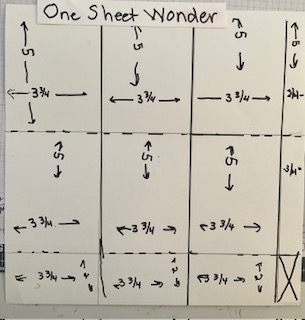 One Sheet Wonder
5 5 5 5
3 3/4 3 3/4 3 3/4 3/4
5 5 5 3/4
3 3/4 3 3/4 3 3/4
3 3/4 2 3 3/4 2 3 3/4 2